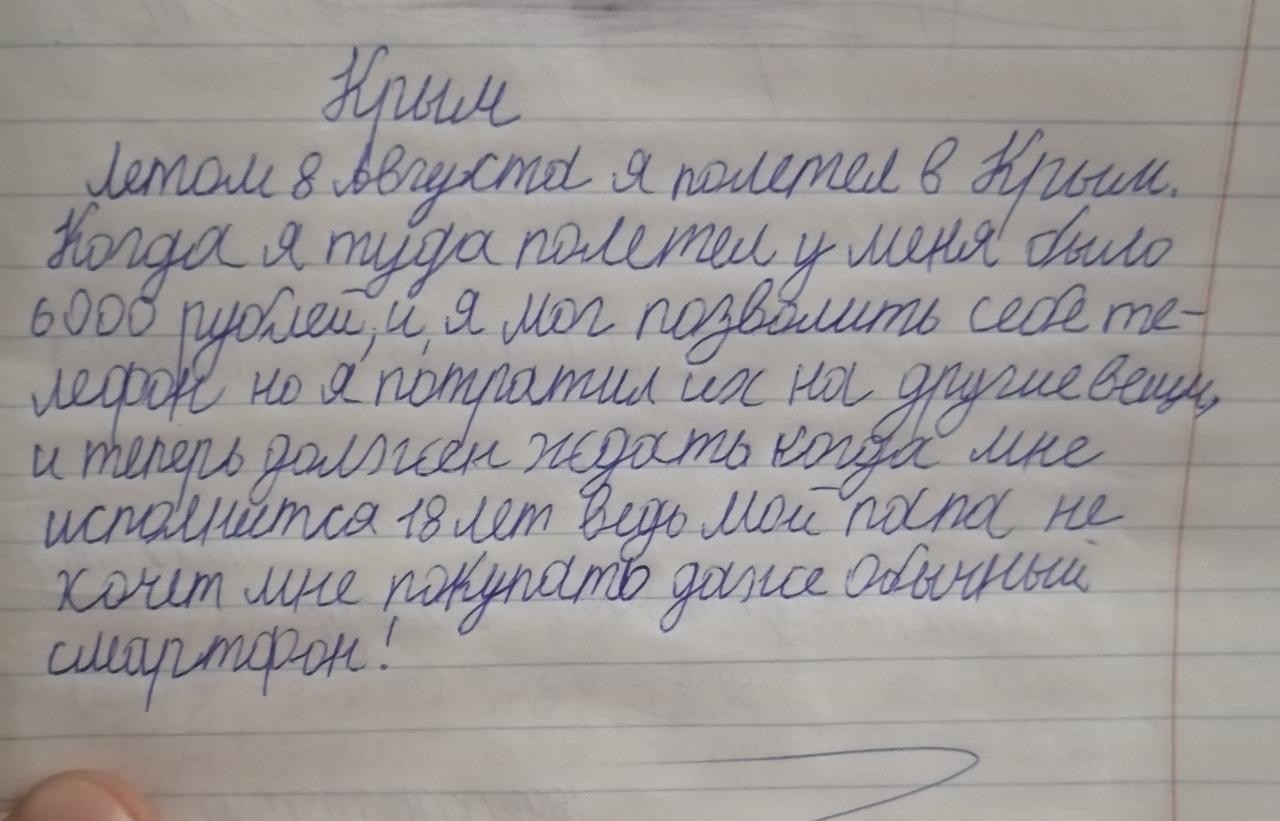 Крым
Летом 8 Августа я полетел в Крым.
Когда я туда полетел у меня было
6000 рублей, и, я мог позволить себе те-
лефон но я потратил их на другие вещи,
и теперь должен ждать когда мне
исполнится 18 лет ведь мой папа не
хочет мне покупать даже обычный
смартфон!